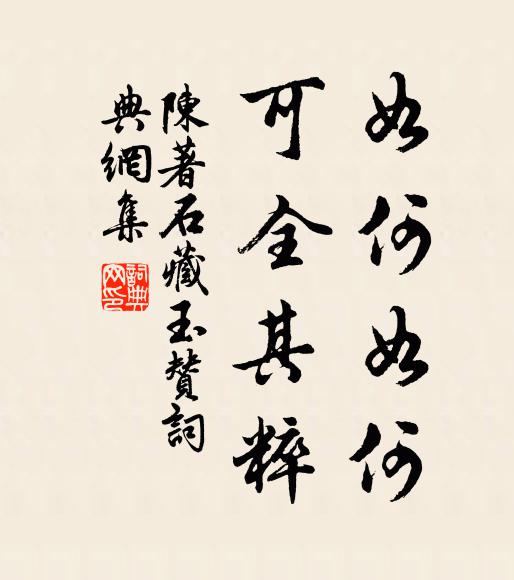 如何如何
可全其粹
陳著石藏玉贊詞
典網集
詞典
网印